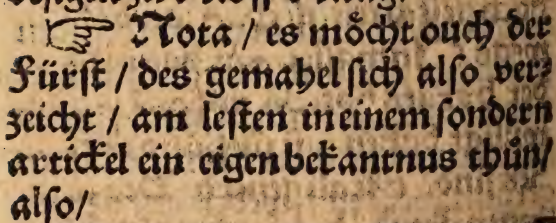 ☞ Nota / es möcht ouch der
Fürst / des gemahel sich also ver⸗
zeicht / am lesten in einem sondern
artickel ein eigen bekantnus thůn /
also /